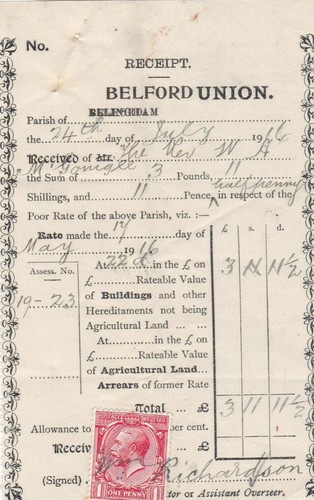 No.
RECEIPT.
BELFORD UNION.
Parish of
the 24th day of July 1916
Received of Mr. The Rev W A
McGonigle
the Sum of 3 Pounds, 11
Shillings, and 11 Pence, halfpenny in respect of the
Poor Rate of the above Parish, viz.:—
Rate made the 17 day of
May 1916
£ s. d.
Assess. No.
19-23
At in the £ on 3 11 11½
£ Rateable Value
of Buildings and other
Hereditaments not being
Agricultural Land
At in the £ on
£ Rateable Value
of Agricultural Land
Arrears of former Rate
Total £ 3 11 11½
Allowance to per cent.
Receiv
(Signed) Richardson
tor or Assistant Overseer.
ONE PENNY